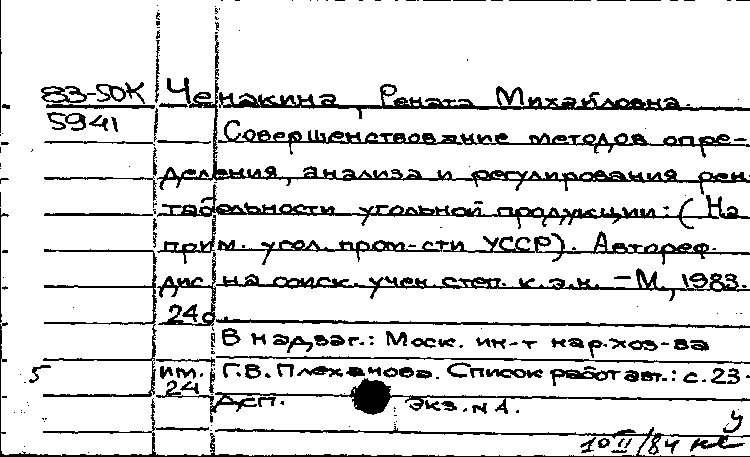 83-50К Ченакина, Рената Михайловна.
5941 Совершенствование методов опре-
деления, анализа и регулирования рен-
табельности угольной продукции: (На
прим. угол. пром-сти УССР). Автореф.
дис на соиск. учен. степ. к.э.н. - М., 1983.
24с.
В надзаг.: Моск. ин-т нар. хоз-ва
5 им. Г.В. Плеханова. Список работ авт.: с. 23-
24
Деп. экз. N 1.
У
10 II/84